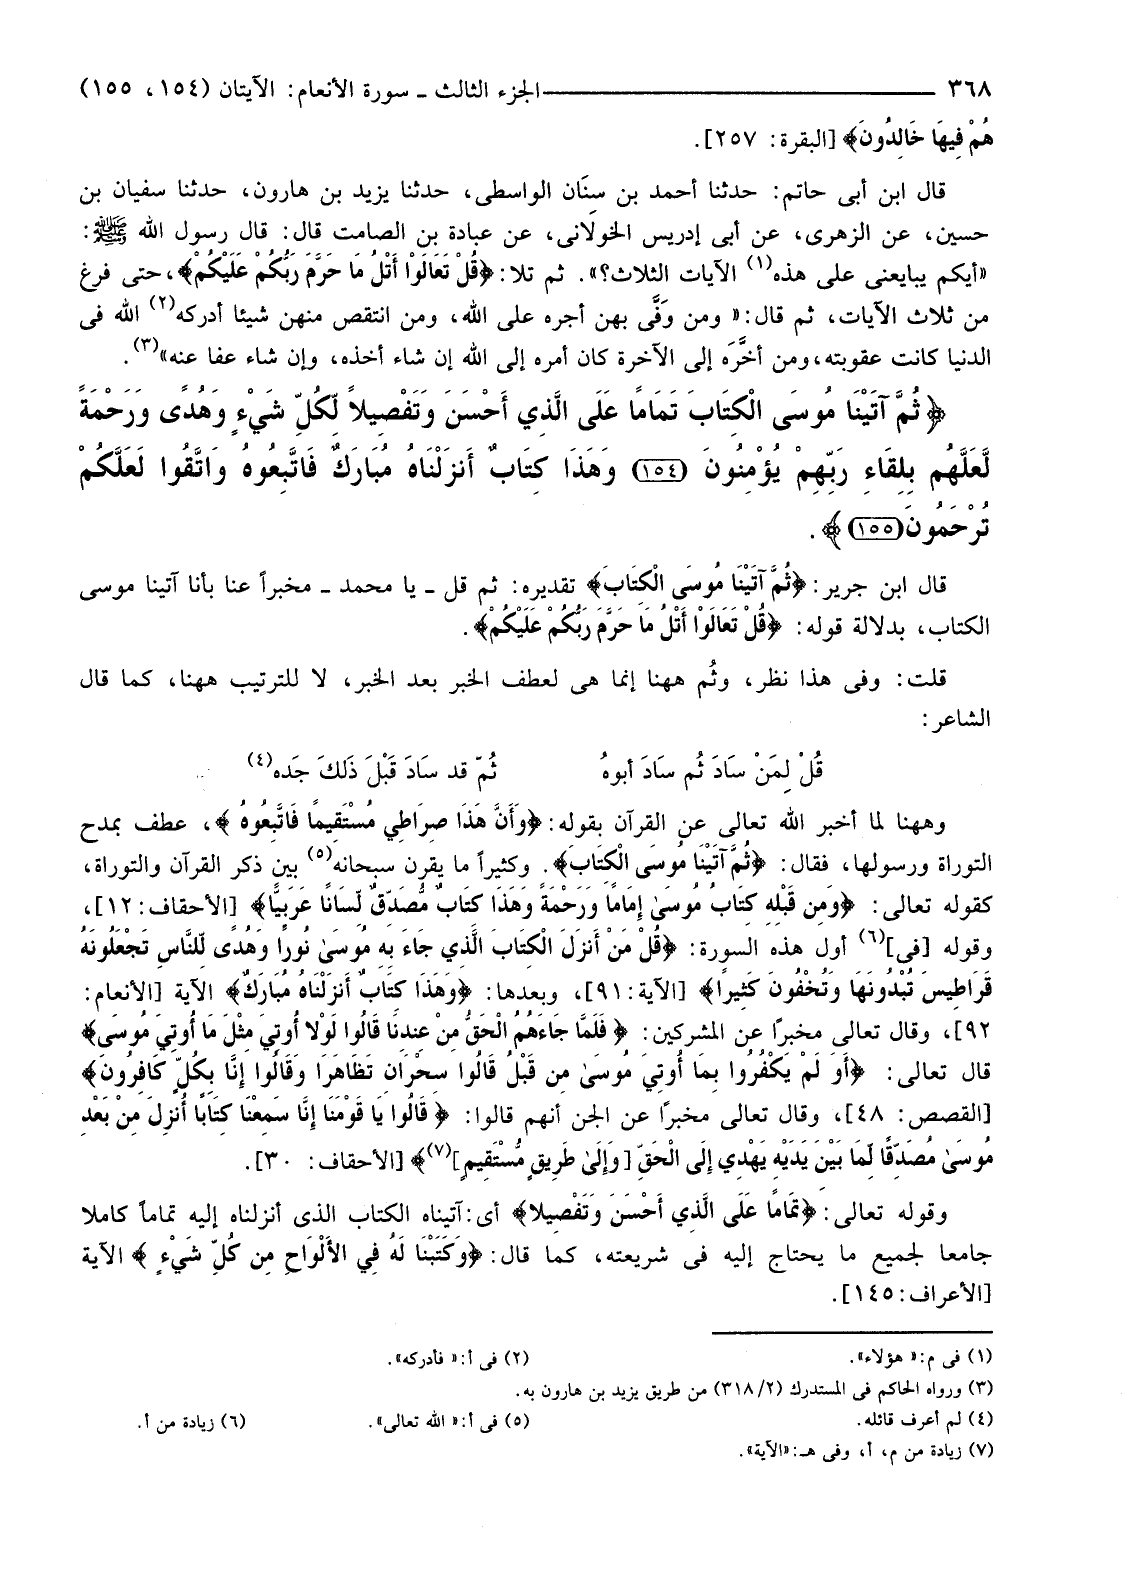 ٣٦٨ ــــــــــ الجزء الثالث ـ سورة الأنعام: الآيتان (١٥٤، ١٥٥)
هُمْ فِيهَا خَالِدُونَ﴾ [البقرة: ٢٥٧].
قال ابن أبى حاتم: حدثنا أحمد بن سِنَان الواسطى، حدثنا يزيد بن هارون، حدثنا سفيان بن
حسين، عن الزهرى، عن أبى إدريس الخولانى، عن عبادة بن الصامت قال: قال رسول الله ﷺ:
«أيكم يبايعنى على هذه(١) الآيات الثلاث؟». ثم تلا: ﴿قُلْ تَعَالَوْا أَتْلُ مَا حَرَّمَ رَبُّكُمْ عَلَيْكُمْ﴾، حتى فرغ
من ثلاث الآيات، ثم قال: « ومن وَفَّى بهن أجره على الله، ومن انتقص منهن شيئا أدركه(٢) الله فى
الدنيا كانت عقوبته، ومن أخَّرَه إلى الآخرة كان أمره إلى الله إن شاء أخذه، وإن شاء عفا عنه»(٣).
﴿ ثُمَّ آتَيْنَا مُوسَى الْكِتَابَ تَمَاماً عَلَى الَّذِي أَحْسَنَ وَتَفْصِيلاً لِّكُلِّ شَيْءٍ وَهُدًى وَرَحْمَةً
لَّعَلَّهُم بِلِقَاءِ رَبِّهِمْ يُؤْمِنُونَ (١٥٤) وَهَذَا كِتَابٌ أَنزَلْنَاهُ مُبَارَكٌ فَاتَّبِعُوهُ وَاتَّقُوا لَعَلَّكُمْ
تُرْحَمُونَ (١٥٥) ﴾ .
قال ابن جرير: ﴿ثُمَّ آتَيْنَا مُوسَى الْكِتَابَ﴾ تقديره: ثم قل ـ يا محمد ـ مخبراً عنا بأنا آتينا موسى
الكتاب، بدلالة قوله: ﴿قُلْ تَعَالَوْا أَتْلُ مَا حَرَّمَ رَبُّكُمْ عَلَيْكُمْ﴾.
قلت: وفى هذا نظر، وثُم ههنا إنما هى لعطف الخبر بعد الخبر، لا للترتيب ههنا، كما قال
الشاعر:
قُلْ لِمَنْ سَادَ ثُم سَادَ أبوهُ ثُمّ قد سَادَ قَبْلَ ذَلكَ جَده(٤)
وههنا لما أخبر الله تعالى عن القرآن بقوله: ﴿وَأَنَّ هَذَا صِرَاطِي مُسْتَقِيمًا فَاتَّبِعُوهُ ﴾، عطف بمدح
التوراة ورسولها، فقال: ﴿ثُمَّ آتَيْنَا مُوسَى الْكِتَابَ﴾. وكثيراً ما يقرن سبحانه(٥) بين ذكر القرآن والتوراة،
كقوله تعالى: ﴿وَمِن قَبْلِهِ كِتَابُ مُوسَىٰ إِمَامًا وَرَحْمَةً وَهَذَا كِتَابٌ مُّصَدِّقٌ لِّسَانًا عَرَبِيًّا﴾ [الأحقاف: ١٢]،
وقوله [فى](٦) أول هذه السورة: ﴿قُلْ مَنْ أَنزَلَ الْكِتَابَ الَّذِي جَاءَ بِهِ مُوسَىٰ نُورًا وَهُدًى لِّلنَّاسِ تَجْعَلُونَهُ
قَرَاطِيسَ تُبْدُونَهَا وَتُخْفُونَ كَثِيرًا﴾ [الآية: ٩١]، وبعدها: ﴿وَهَذَا كِتَابٌ أَنزَلْنَاهُ مُبَارَكٌ﴾ الآية [الأنعام:
٩٢]، وقال تعالى مخبرًا عن المشركين: ﴿ فَلَمَّا جَاءَهُمُ الْحَقُّ مِنْ عِندِنَا قَالُوا لَوْلا أُوتِيَ مِثْلَ مَا أُوتِيَ مُوسَى﴾
قال تعالى: ﴿أَوَ لَمْ يَكْفُرُوا بِمَا أُوتِيَ مُوسَىٰ مِن قَبْلُ قَالُوا سِحْرَانِ تَظَاهَرَا وَقَالُوا إِنَّا بِكُلٍّ كَافِرُونَ﴾
[القصص: ٤٨]، وقال تعالى مخبرًا عن الجن أنهم قالوا: ﴿ قَالُوا يَا قَوْمَنَا إِنَّا سَمِعْنَا كِتَابًا أُنزِلَ مِنْ بَعْدِ
مُوسَىٰ مُصَدِّقًا لِّمَا بَيْنَ يَدَيْهِ يَهْدِي إِلَى الْحَقِّ [وَإِلَىٰ طَرِيقٍ مُّسْتَقِيمٍ](٧)﴾ [الأحقاف: ٣٠].
وقوله تعالى: ﴿تَمَامًا عَلَى الَّذِي أَحْسَنَ وَتَفْصِيلا﴾ أى: آتيناه الكتاب الذى أنزلناه إليه تماماً كاملا
جامعا لجميع ما يحتاج إليه فى شريعته، كما قال: ﴿وَكَتَبْنَا لَهُ فِي الأَلْوَاحِ مِن كُلِّ شَيْءٍ ﴾ الآية
[الأعراف: ١٤٥].
(١) فى م: « هؤلاء». (٢) فى أ: « فأدركه».
(٣) ورواه الحاكم فى المستدرك (٣١٨/٢) من طريق يزيد بن هارون به.
(٤) لم أعرف قائله. (٥) فى أ: « الله تعالى». (٦) زيادة من أ.
(٧) زيادة من م، أ، وفى هـ: «الآية».